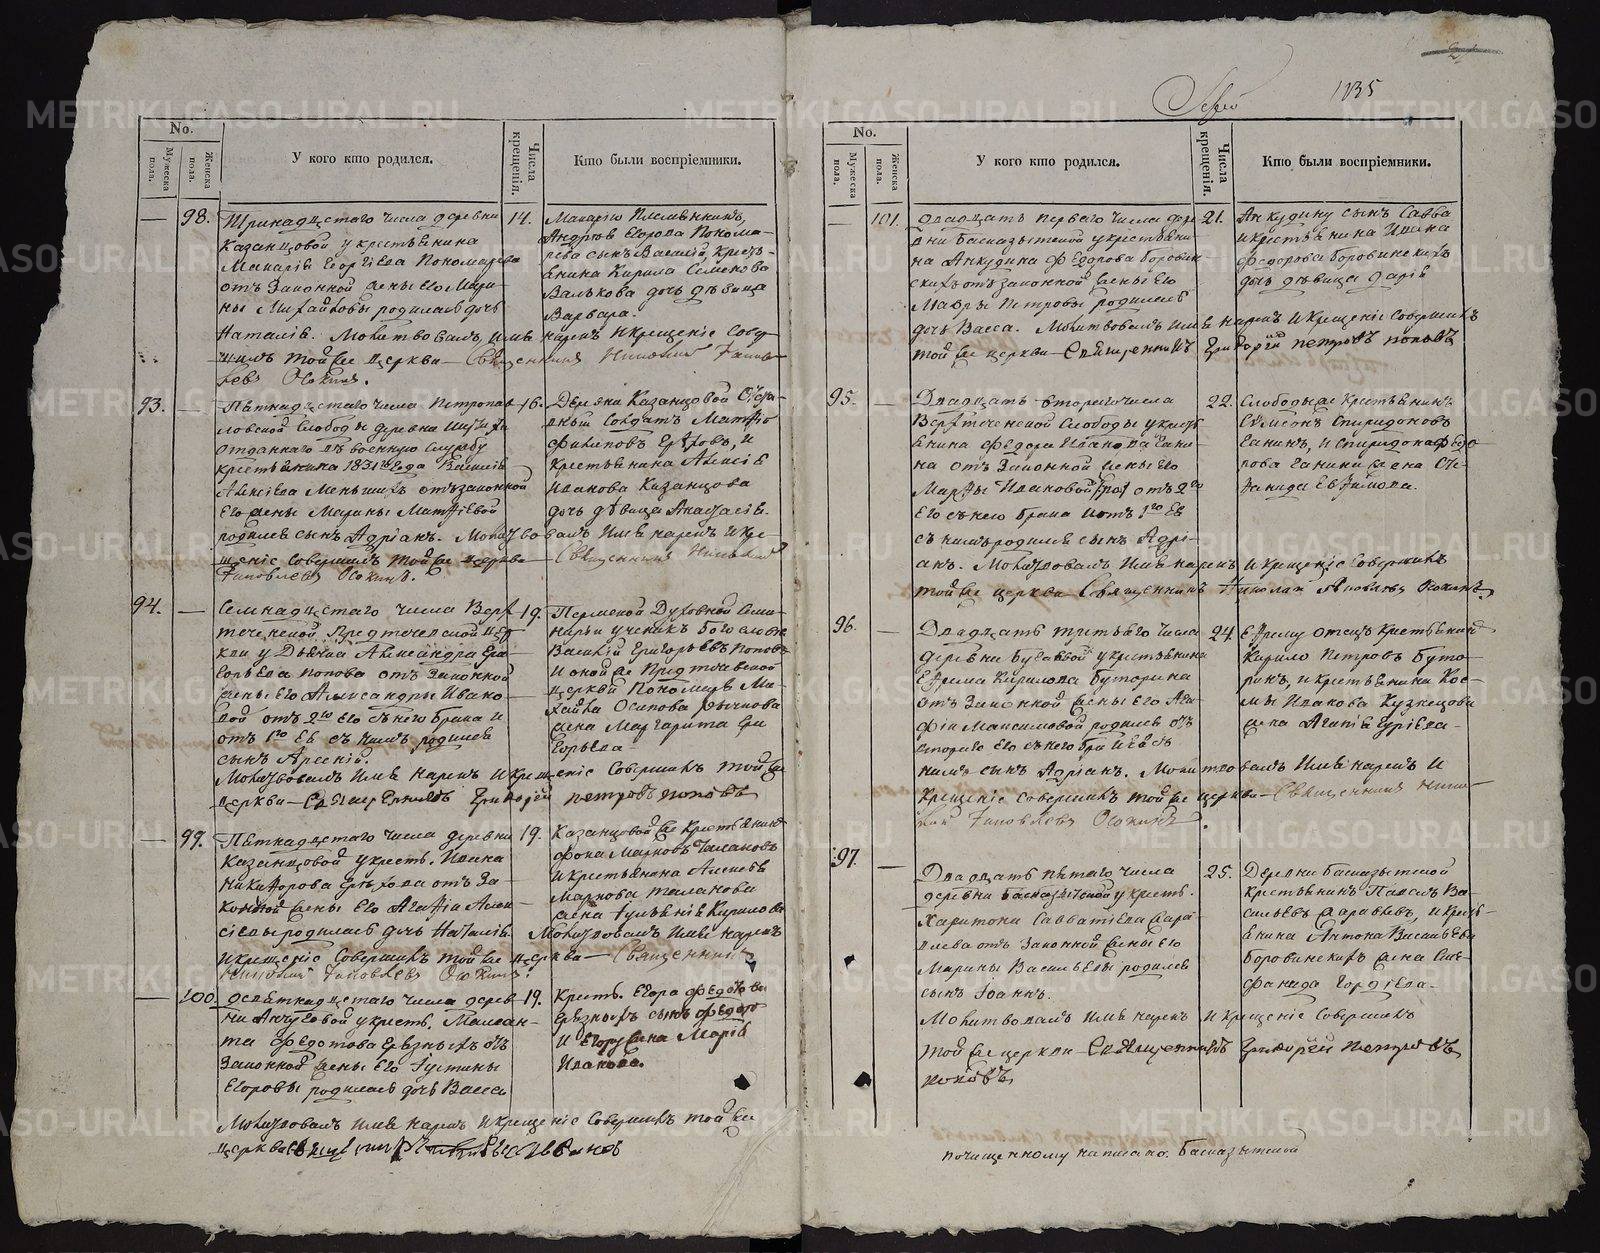 No.
Мужеска пола.
Женска пола.
У кого кто родился.
Числа крещенія.
Кто были воспріемники.
98.
Тринадцстаго числа деревни
Казанцовой у крестьянина
Макарія Георгіева Пономарева
отъ законной жены его Мари-
ны Михайловы родилась дочь
Наталія. Молитвовалъ, имя нарекъ и крещеніе совер-
шилъ той же церкви Священникъ Николай Яков-
левъ Осокинъ.
14.
Макарію племянникъ,
Андрея Егорова Понома-
рева сынъ Василій, кресть-
янина Кирила Семенова
Валькова дочь дѣвица
Варвара.
93.
Пятнадцстаго числа Петропав-
ловской слободы деревни
отданнаго въ военную службу
крестьянина 1831го года Василія
Алексіева Меньшихъ отъ законной
его жены Марины Матѳіевой
родился сынъ Адріанъ. Молитвовалъ имя нарекъ и кре-
щеніе совершилъ той же церкви Священникъ Николай
Яковлевъ Осокинъ.
16.
Деревни Казанцовой
солдатъ Матѳій
Филиповъ и
крестьянина Алексія
Иванова Казанцова
дочь дѣвица Анастасія.
94.
Семнадцстаго числа Верх-
теченской Предтечевской цер-
кви у Дьячка Александра Гри-
горьева Попова отъ законной
жены его Александры Ивано-
вой отъ 2го его съ нею брака и
отъ 1го ея съ нимъ родился
сынъ Арсеній.
Молитвовалъ имя нарекъ и крещеніе совершилъ той же
церкви Священникъ Григорій Петровъ Поповъ
19.
Пермской Духовной Семи-
наріи ученикъ Богословія
Василій Григорьевъ Поповъ
и оной же Предтечевской
церкви Пономаря Ми-
хайла Осипова Рычкова
жена Маргарита Гри
горьева
99.
Пятнадцстаго числа деревни
Казанцовой у крест. Ивана
Никифорова отъ за-
конной жены его Агафіи Алек-
сіевы родилась дочь Наталія. Молитвовалъ имя нарекъ
и крещеніе совершилъ той же церкви Священникъ
Николай Яковлевъ Осокинъ.
19.
Казанцовой же крестьянинъ
Фока Марковъ Талановъ
и крестьянина Алексѣя
Маркова Таланова
жена Гульянія Кирилова
100.
Девятнадцстаго числа дерев-
ни Анчуговой у крест. Малан-
та Федотова Грязныхъ отъ
законной жены его Густины
Егоровы родилась дочь Васса
Молитвовалъ имя нарекъ и крещеніе совершилъ той же
церкви
19.
Крест. Егора Федотова
Грязныхъ сынъ Федотъ
и Егору жена Марія
Иванова.
1835
No.
Мужеска пола.
Женска пола.
У кого кто родился.
Числа крещенія.
Кто были воспріемники.
101.
Двадцать перваго числа дере-
вни Баснязытской у крестьяни-
на Анкудина Федорова Боровин-
скихъ отъ законной жены его
Мавры Петровы родилась
дочь Васса. Молитвовалъ имя нарекъ и крещеніе совершилъ
той же церкви Священникъ Григорій Петровъ Поповъ
21.
Анкудину сынъ Савва
и крестьянина Ивана
Федорова Боровинскихъ
дочь дѣвица Дарія
95.
Двадцать втораго числа
Верхтеченской слободы у кресть
янина Федора Иванова Гани-
на отъ законной жены его
Марѳы Ивановой отъ 2го
его съ нею брака и отъ 1го ея
съ нимъ родился сынъ Адрі-
анъ. Молитвовалъ имя нарекъ и крещеніе совершилъ
той же церкви Священникъ Николай Яковлевъ Осокинъ
22.
Слободы же крестьянинъ
Сѵмеонъ Спиридоновъ
Ганинъ, и Спиридона Федо
рова Ганина жена Сте-
фанида Евѳимова.
96.
Двадцать третьяго числа
деревни Бугаевой у крестьянина
Ефрема Кирилова Буторина
отъ законной жены его Ага-
фіи Максимовой родился отъ
втораго его съ нею бра и ея съ
нимъ сынъ Адріанъ. Молитвовалъ имя нарекъ и
крещеніе совершилъ той же церкви Священникъ Нико-
лай Яковлевъ Осокинъ.
24.
Ефрему отецъ крестьянинъ
Кирило Петровъ Буто-
ринъ, и крестьянина Кос-
мы Иванова Кузнецова
жена Агапія Гуріева
97.
Двадцать пятаго числа
деревни Баснязытской у крест.
Харитона Савватіева Жара-
влева отъ законной жены его
Марины Васильевы родился
сынъ Іоаннъ.
Молитвовалъ имя нарекъ и крещеніе совершилъ
той же церкви Священникъ Григорій Петровъ
Поповъ
25.
Деревни Баснязытской
крестьянинъ Павелъ Ва-
сильевъ Жаравлевъ, и кресть-
янина Антона Васильева
Боровинскихъ жена Сте-
фанида Гордіева.
почищенному написано. Баснязытской
METRIKI.GASO-URAL.RU